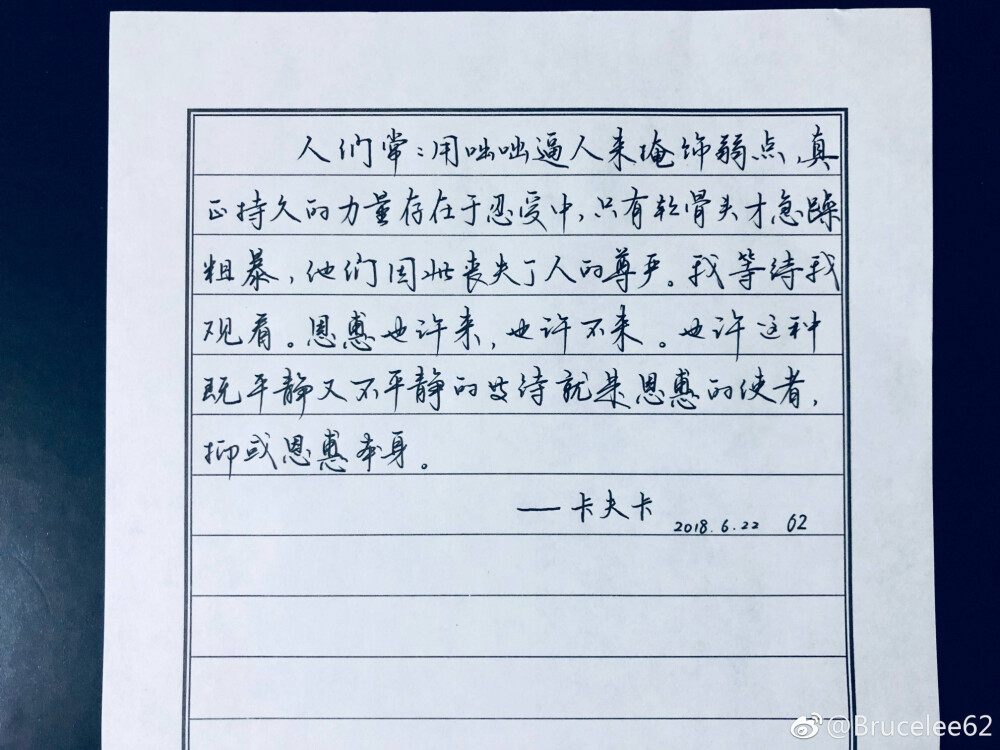 人们常:用咄咄逼人来掩饰弱点,真
正持久的力量存在于忍受中,只有软骨头才急躁
粗暴,他们因此丧失了人的尊严。我等待我
观看。恩惠也许来,也许不来。也许这种
既平静又不平静的等待就是恩惠的使者,
抑或恩惠本身。
——卡夫卡 2018.6.22 62
@Brucelee62